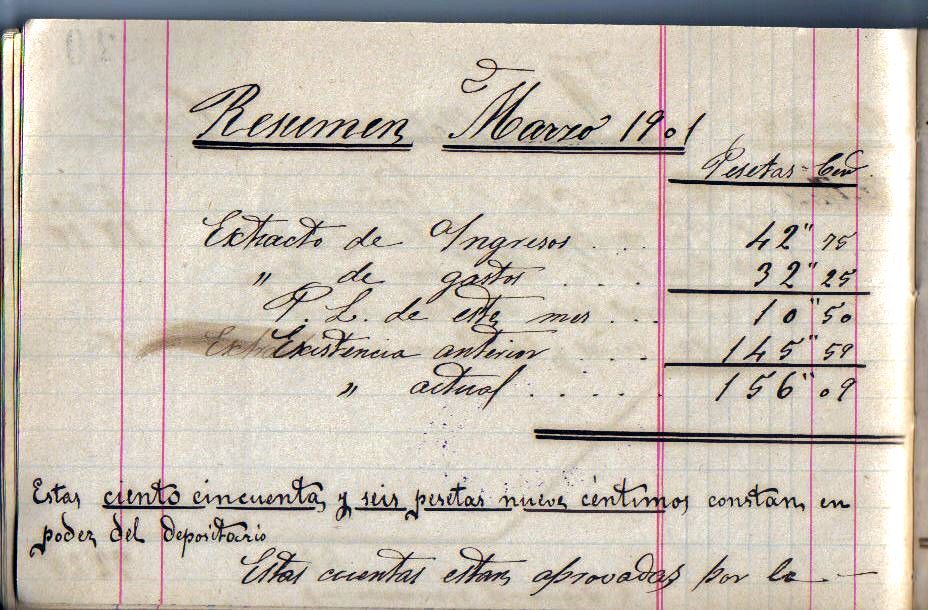 Resumen Marzo 1901
Pesetas - Cent
Extracto de Ingresos .... 42" 75
" de gastos ..... 32" 25
P. L. de este mes ... 10" 50
Existencia anterior .... 145" 59
" actual ...... 156" 09
Estas ciento cincuenta y seis pesetas nueve céntimos constan en
poder del depositario
Estas cuentas estan aprovadas por la